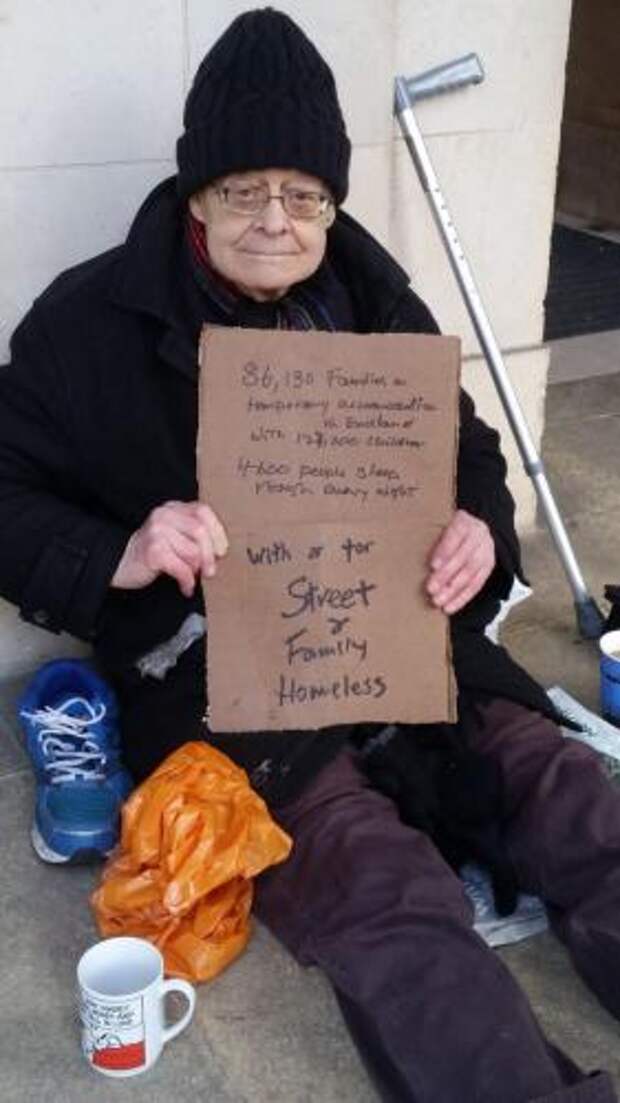 86,130 Families in
temporary accommodation
in England
with 127,000 children
4600 people sleep
rough every night
With or for
Street
&
Family
Homeless